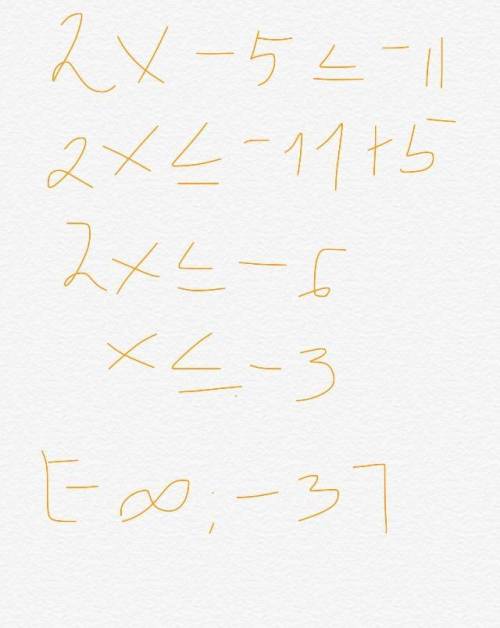 2x - 5 ≤ -11
2x ≤ -11 + 5
2x ≤ -6
x ≤ -3
[-∞; -3]